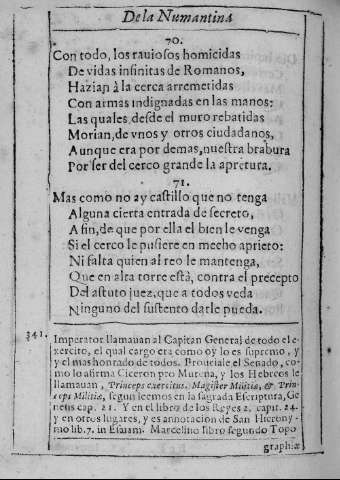 De la Numantina
70.
Con todo, los rauiosos homicidas
De vidas infinitas de Romanos,
Hazian à la cerca arremetidas
Con armas indignadas en las manos:
Las quales, desde el muro rebatidas
Morian, de vnos y otros ciudadanos,
Aunque era por demas, nuestra brabura
Por ser del cerco grande la apretura.
71.
Mas como no ay castillo que no tenga
Alguna cierta entrada de secreto,
A fin, de que por ella el bien le venga
Si el cerco le pusiere en mecho aprieto:
Ni falta quien al reo le mantenga,
Que en alta torre està, contra el precepto
Del astuto juez, que a todos veda
Ninguno del sustento darle pueda.
341. Imperator llamauan al Capitan General de todo el e-
xercito, el qual cargo era como oy lo es supremo, y
y el mas honrado de todos. Prouciale el Senado, co-
mo lo afirma Ciceron pro Murena, y los Hebreos le
llamauan, Princeps exercitus, Magister Militiæ, & Prin-
ceps Militiæ, segun leemos en la sagrada Escriptura, Ge
nesis cap. 21. Y en el libro de los Reyes 2. capit. 24.
y en otros lugares, y es annotacion de San Hierony-
mo lib. 7. in Esaiam. Marcelino libro segundo Topo
graphiæ